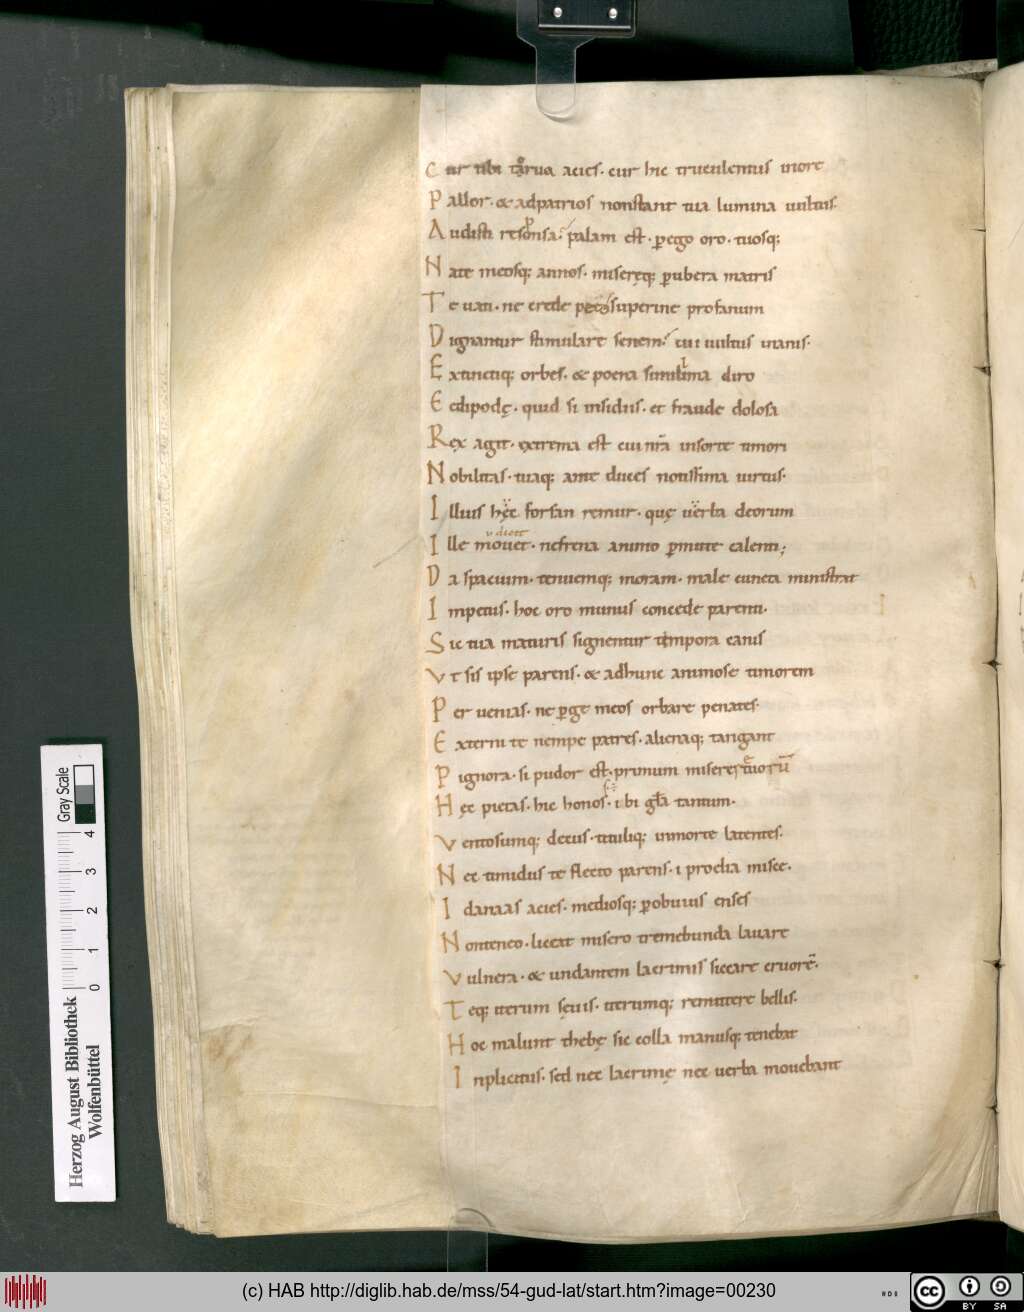 C ur tibi torua acies. cur hic truculentus inore
P allor. & adpatrios nonstant tua lumina uultus.
A udisti responsa. palam est. p ego oro. tuosq;
N ate meosq; annos. miseręq; p ubera matris
T e uati. ne crede superine profanum
D ignantur stimulare senem. cui uultus inanis.
E xtinctiq; orbes. & poena simillima diro
E edipodę. quid si insidiis. et fraude dolosa
R ex agit. extrema est cui nr̄a insorte timori
N obilitas. tuaq; ante duces notissima uirtus.
I llius hęc forsan remur. quę uerba deorum
I lle mouet. nefrena animo p mitte calenti;
D a spacium. tenuemq; moram. male cuncta ministrat
I mpetus. hoc oro munus concede parenti.
S ic tua maturis signentur tempora canis
V t sis ipse parens. & adhunc animose timorem
P er uenias. ne p ge meos orbare penates.
E xterni te nempe patres. alienaq; tangant
P ignora. si pudor est. primum miserere tuorū
H ęc pietas. hic honos. ibi gl̄a tantum.
V entosumq; decus. tituliq; inmorte latentes.
N ec timidus te flecto parens. i proelia misce.
I danaas acies. mediosq; p obuius enses
N onteneo. liceat misero tremebunda lauare
V ulnera. & undantem lacrimis siccare cruorē.
T eq; iterum sęuis. iterumq; remittere bellis.
H oc malunt thebę sic colla manusq; tenebat
I nplicitus. sed nec lacrimę nec uerba mouebant
Herzog August Bibliothek
Wolfenbüttel
Gray Scale
0 1 2 3 4
(c) HAB http://diglib.hab.de/mss/54-gud-lat/start.htm?image=00230
cc BY SA